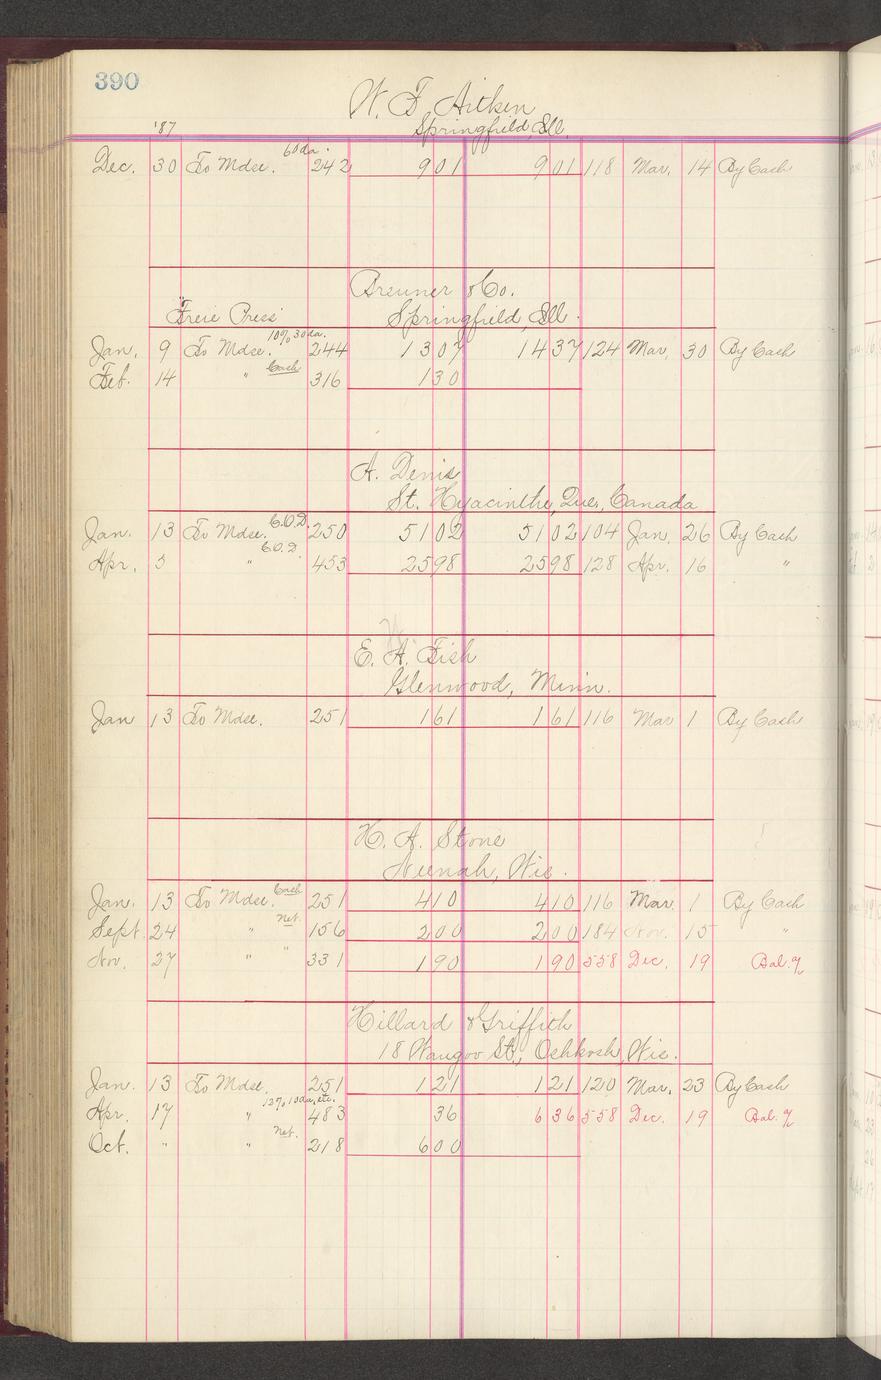 390
W. F. Aitken
'87 Springfield, Ill.
60 da.
Dec. 30 To Mdse. 242 901 901 118 Mar. 14 By Cash
Breuner & Co.
"Freie Press" Springfield, Ill.
10% 30 da.
Jan. 9 To Mdse. 244 1307 1437 124 Mar. 30 By Cash
Feb. 14 " Cash 316 130
A. Denis
St. Hyacinthe, Que., Canada
Jan. 13 To Mdse. C.O.D. 250 5102 5102 104 Jan. 26 By Cash
Apr. 5 " C.O.D. 453 2598 2598 128 Apr. 16 "
E. A. Fish
Glenwood, Minn.
Jan 13 To Mdse. 251 161 161 116 Mar 1 By Cash
H. A. Stone
Neenah, Wis.
Jan. 13 To Mdse. Cash 251 410 410 116 Mar. 1 By Cash
Sept. 24 " Net. 156 200 200 184 Nov. 15 "
Nov. 27 " " 331 190 190 558 Dec. 19 Bal. %
Hillard & Griffith
18 Waugoo St., Oshkosh, Wis.
Jan. 13 To Mdse. 251 121 121 120 Mar. 23 By Cash
12% 10 da, etc.
Apr. 17 " 483 36 636 558 Dec. 19 Bal. %
Oct. " " Net. 218 600